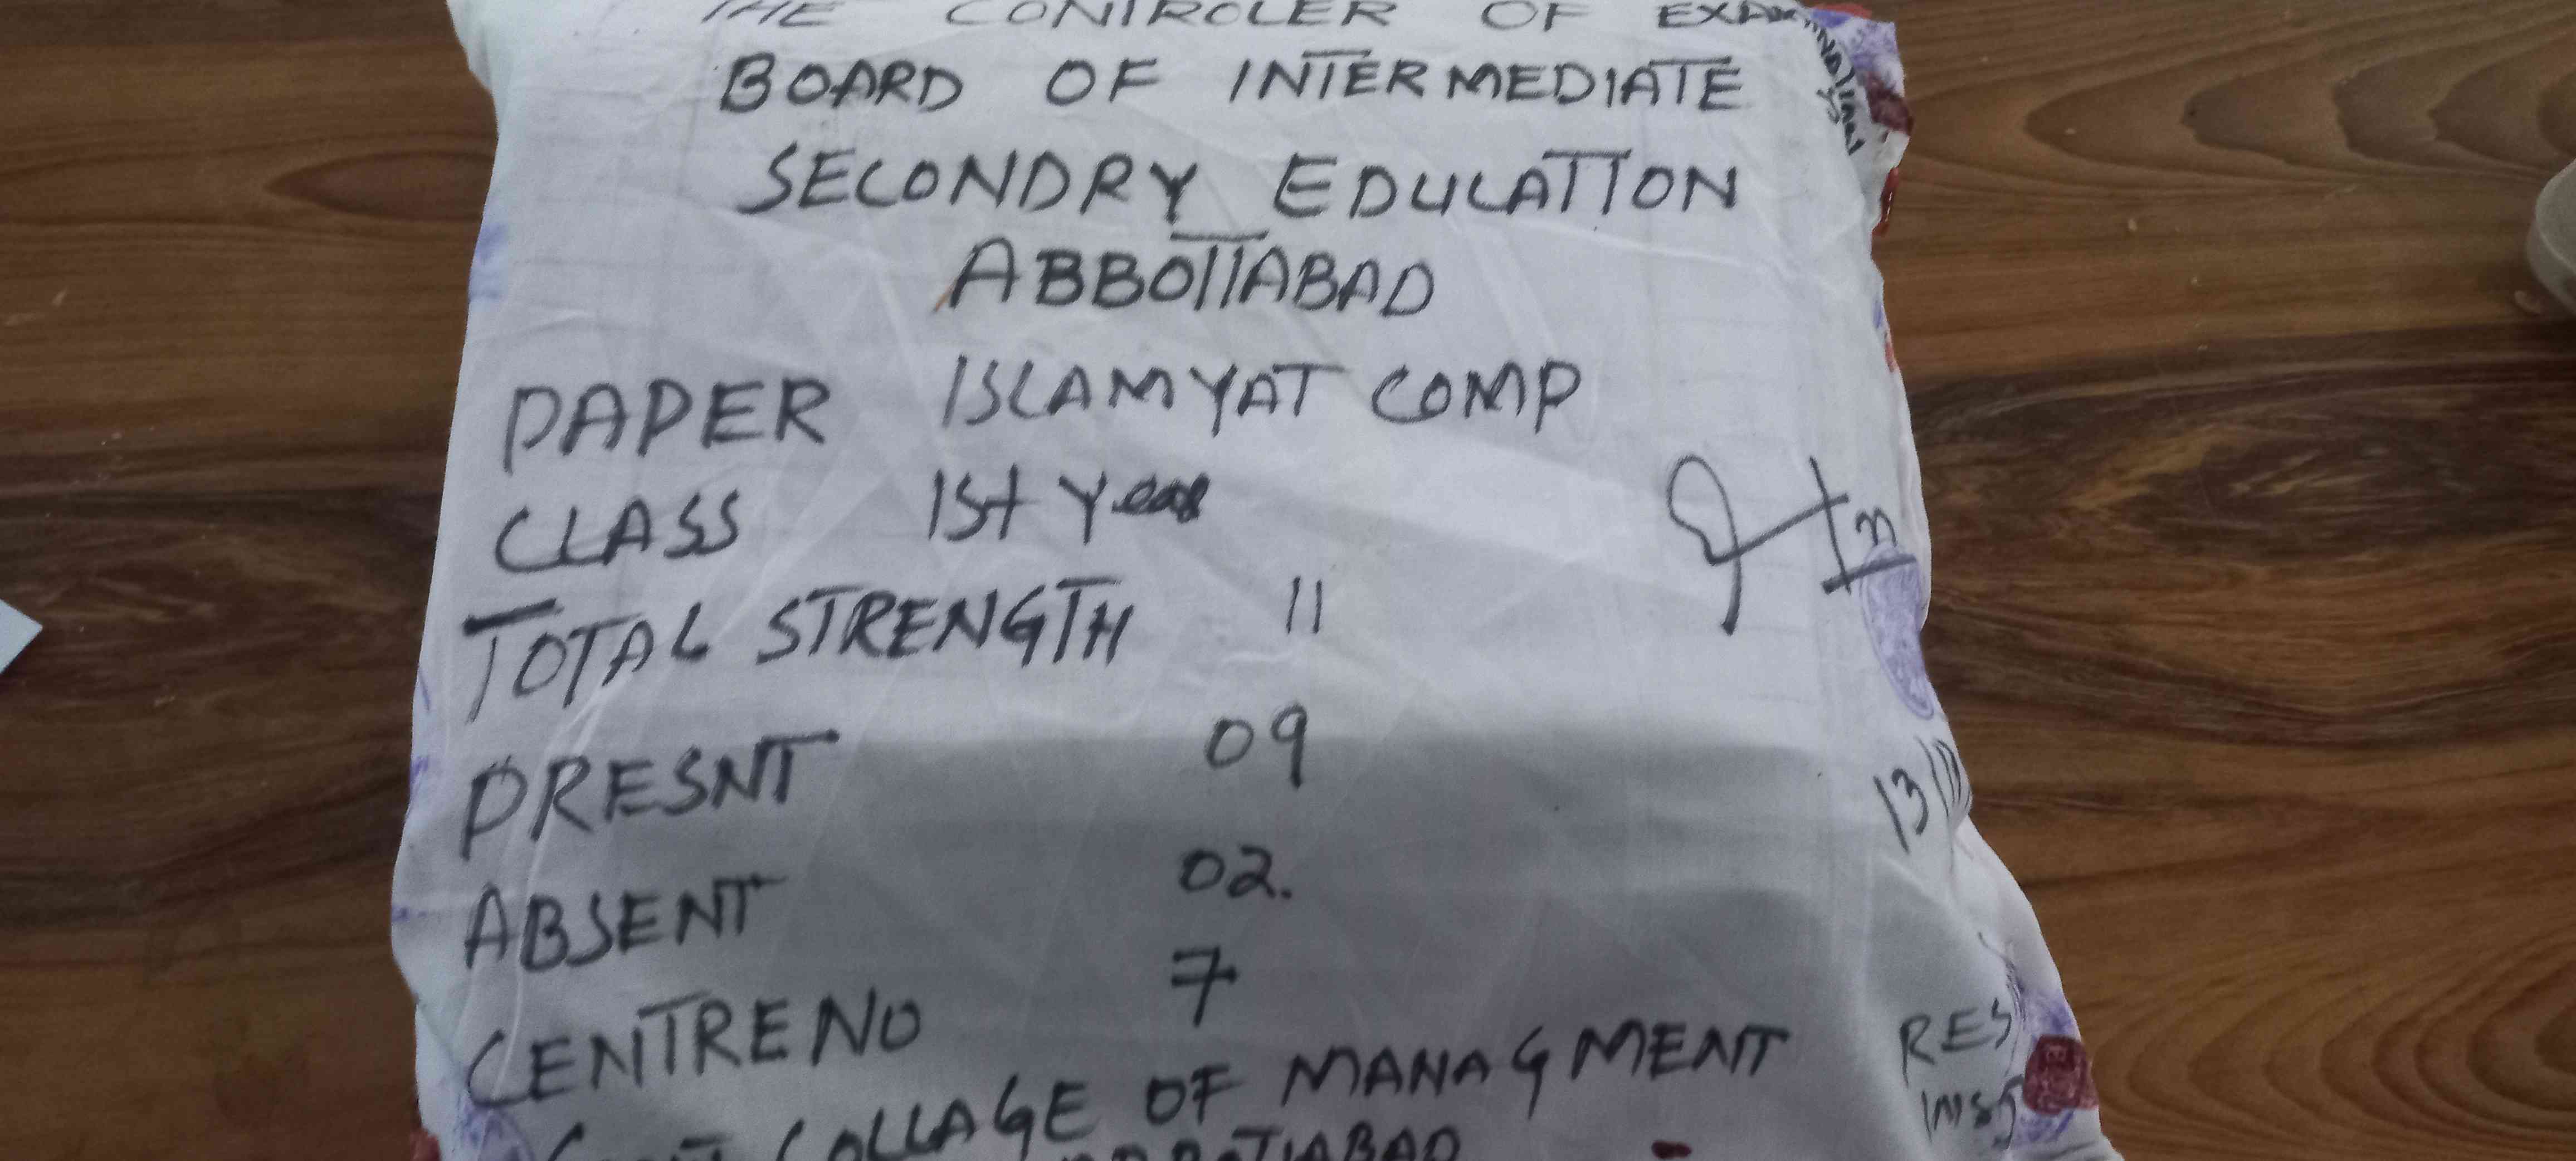 THE CONTROLER OF EXAMINATIONS
BOARD OF INTERMEDIATE
SECONDRY EDUCATION
ABBOTTABAD
PAPER ISLAMYAT COMP
CLASS 1st Year
TOTAL STRENGTH 11
PRESNT 09
ABSENT 02.
CENTRE NO 7
GOVT COLLAGE OF MANAGMENT
ABBOTTABAD
13
RES